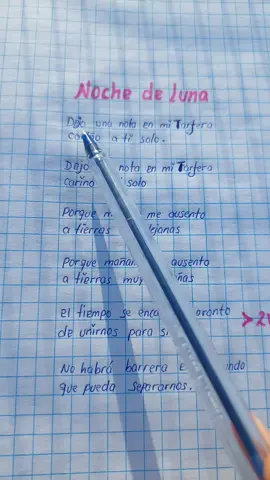 Noche de luna
Dejo una nota en mi Tarjera
cariño a ti solo.
Dejo nota en mi Tarjera
cariño solo
Porque me ausento
a tierras
Porque mañan ausento
a tierras muy
el tiempo se
de unirnos para
No habrá barrera
que pueda separarnos.